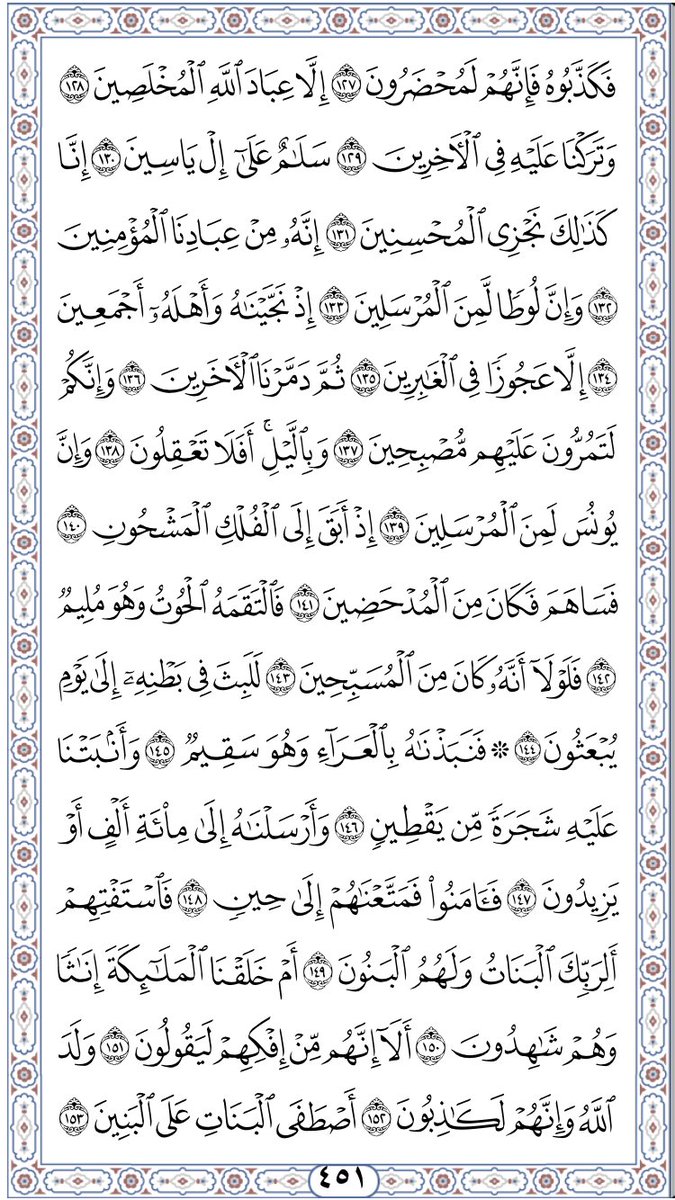 فَكَذَّبُوهُ فَإِنَّهُمْ لَمُحْضَرُونَ ١٢٧ إِلَّا عِبَادَ ٱللَّهِ ٱلْمُخْلَصِينَ ١٢٨
وَتَرَكْنَا عَلَيْهِ فِى ٱلْـَٔاخِرِينَ ١٢٩ سَلَـٰمٌ عَلَىٰٓ إِلْ يَاسِينَ ١٣٠ إِنَّا
كَذَٰلِكَ نَجْزِى ٱلْمُحْسِنِينَ ١٣١ إِنَّهُۥ مِنْ عِبَادِنَا ٱلْمُؤْمِنِينَ
١٣٢ وَإِنَّ لُوطًا لَّمِنَ ٱلْمُرْسَلِينَ ١٣٣ إِذْ نَجَّيْنَـٰهُ وَأَهْلَهُۥٓ أَجْمَعِينَ
١٣٤ إِلَّا عَجُوزًا فِى ٱلْغَـٰبِرِينَ ١٣٥ ثُمَّ دَمَّرْنَا ٱلْـَٔاخَرِينَ ١٣٦ وَإِنَّكُمْ
لَتَمُرُّونَ عَلَيْهِم مُّصْبِحِينَ ١٣٧ وَبِٱلَّيْلِ ۗ أَفَلَا تَعْقِلُونَ ١٣٨ وَإِنَّ
يُونُسَ لَمِنَ ٱلْمُرْسَلِينَ ١٣٩ إِذْ أَبَقَ إِلَى ٱلْفُلْكِ ٱلْمَشْحُونِ ١٤٠
فَسَاهَمَ فَكَانَ مِنَ ٱلْمُدْحَضِينَ ١٤١ فَٱلْتَقَمَهُ ٱلْحُوتُ وَهُوَ مُلِيمٌ
١٤٢ فَلَوْلَآ أَنَّهُۥ كَانَ مِنَ ٱلْمُسَبِّحِينَ ١٤٣ لَلَبِثَ فِى بَطْنِهِۦٓ إِلَىٰ يَوْمِ
يُبْعَثُونَ ١٤٤ ۞ فَنَبَذْنَـٰهُ بِٱلْعَرَآءِ وَهُوَ سَقِيمٌ ١٤٥ وَأَنۢبَتْنَا
عَلَيْهِ شَجَرَةً مِّن يَقْطِينٍ ١٤٦ وَأَرْسَلْنَـٰهُ إِلَىٰ مِا۟ئَةِ أَلْفٍ أَوْ
يَزِيدُونَ ١٤٧ فَـَٔامَنُوا۟ فَمَتَّعْنَـٰهُمْ إِلَىٰ حِينٍ ١٤٨ فَٱسْتَفْتِهِمْ
أَلِرَبِّكَ ٱلْبَنَاتُ وَلَهُمُ ٱلْبَنُونَ ١٤٩ أَمْ خَلَقْنَا ٱلْمَلَـٰٓئِكَةَ إِنَـٰثًا
وَهُمْ شَـٰهِدُونَ ١٥٠ أَلَآ إِنَّهُم مِّنْ إِفْكِهِمْ لَيَقُولُونَ ١٥١ وَلَدَ
ٱللَّهُ وَإِنَّهُمْ لَكَـٰذِبُونَ ١٥٢ أَصْطَفَى ٱلْبَنَاتِ عَلَى ٱلْبَنِينَ ١٥٣
٤٥١